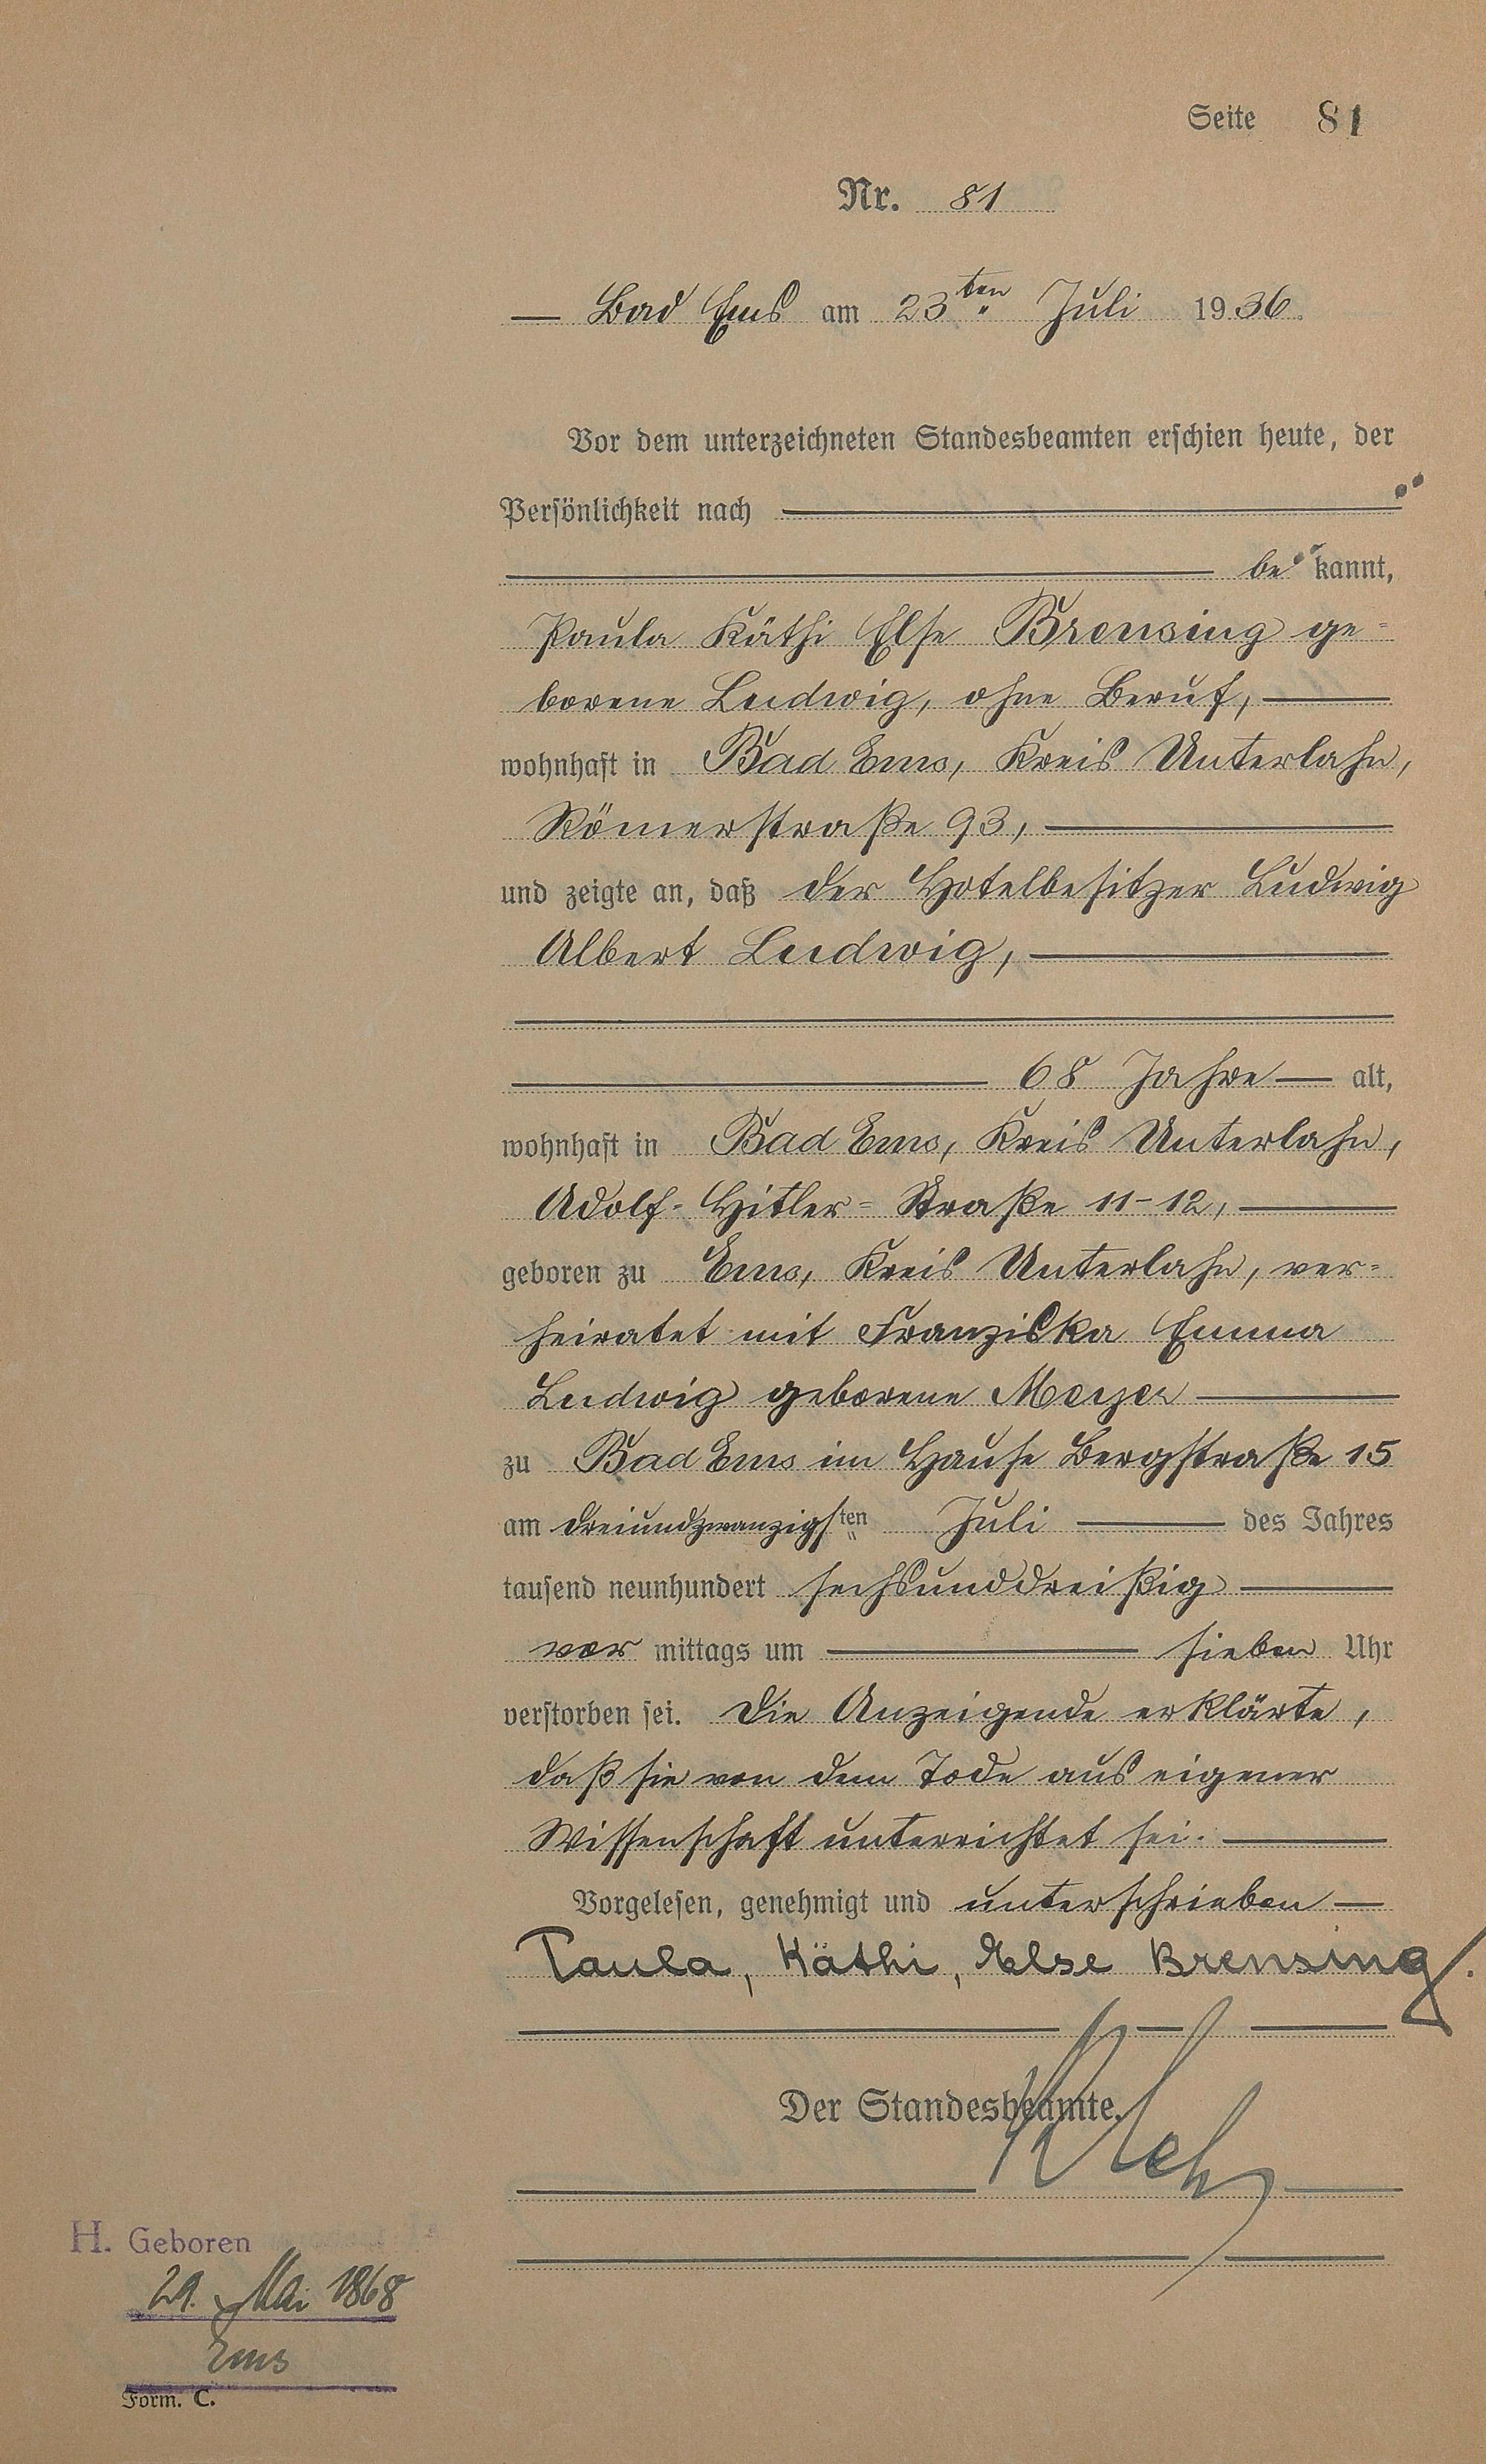 Seite 81
Nr. 81
Bad Ems am 23ten Juli 1936.
Vor dem unterzeichneten Standesbeamten erschien heute, der
Persönlichkeit nach
be kannt,
Paula Käthi Else Brensing ge-
borene Ludwig, ohne Beruf,
wohnhaft in Bad Ems, Kreis Unterlahn,
Römerstraße 93,
und zeigte an, daß der Hotelbesitzer Ludwig
Albert Ludwig,
68 Jahre alt,
wohnhaft in Bad Ems, Kreis Unterlahn,
Adolf-Hitler-Straße 11-12,
geboren zu Ems, Kreis Unterlahn, ver-
heiratet mit Franziska Emma
Ludwig geborene Meyer
zu Bad Ems im Hause Bergstraße 15
am dreiundzwanzigsten Juli des Jahres
tausend neunhundert sechsunddreißig
vor mittags um sieben Uhr
verstorben sei. Die Anzeigende erklärte,
daß sie von dem Tode aus eigener
Wissenschaft unterrichtet sei.
Vorgelesen, genehmigt und unterschrieben
Paula, Käthi, Else Brensing.
Der Standesbeamte.
H. Geboren
29. Mai 1868
Ems
Form. C.